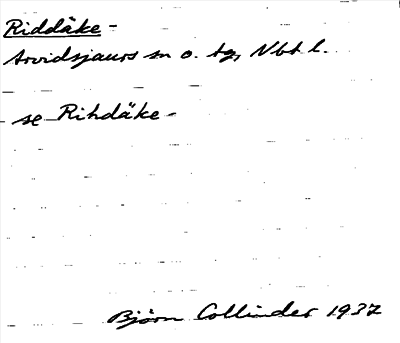 Riddäke -
Arvidsjaurs sn o. tg, Nbt l.
se Rihdäke -
Björn Collinder 1937